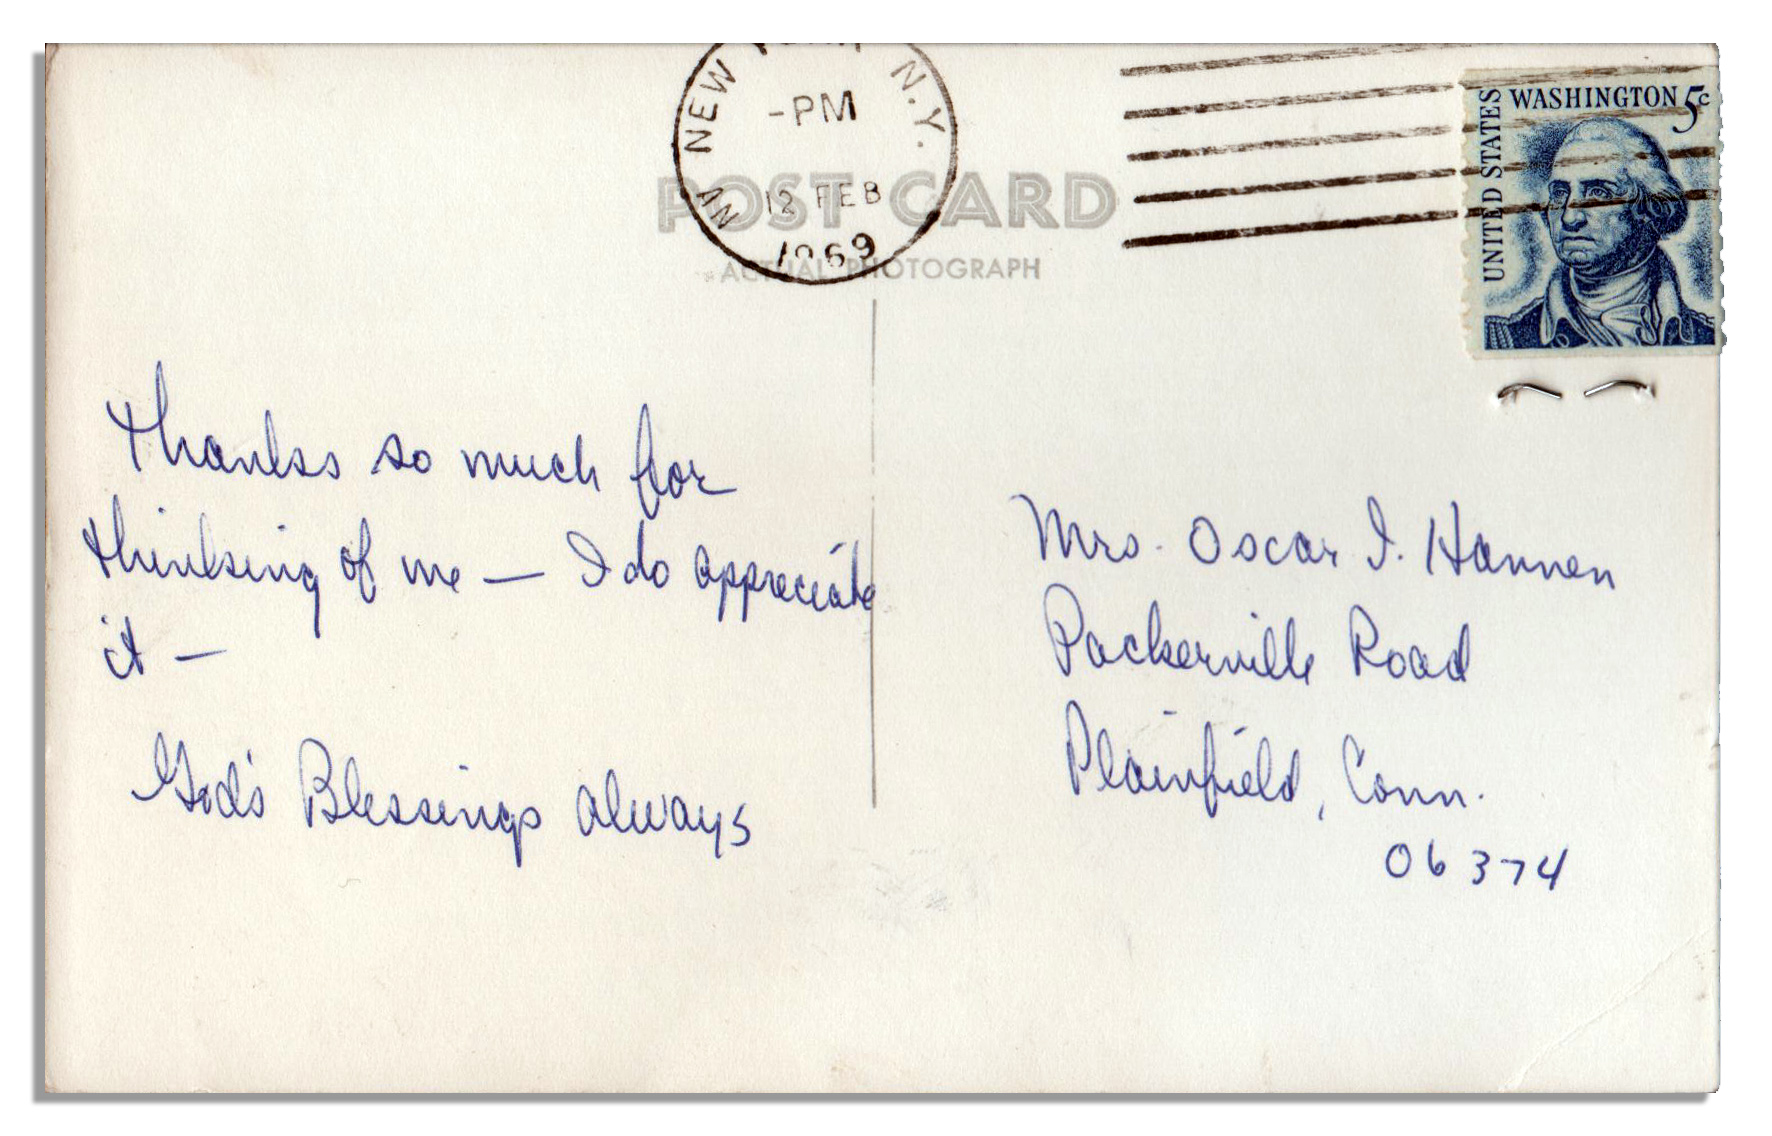 NEW YORK, N.Y.
-PM
12 FEB
1969
NY
UNITED STATES
WASHINGTON 5c
POST CARD
ACTUAL PHOTOGRAPH
Thanks so much for
thinking of me — I do appreciate
it —
God's Blessings always
Mrs. Oscar I. Hannen
Packerville Road
Plainfield, Conn.
06374